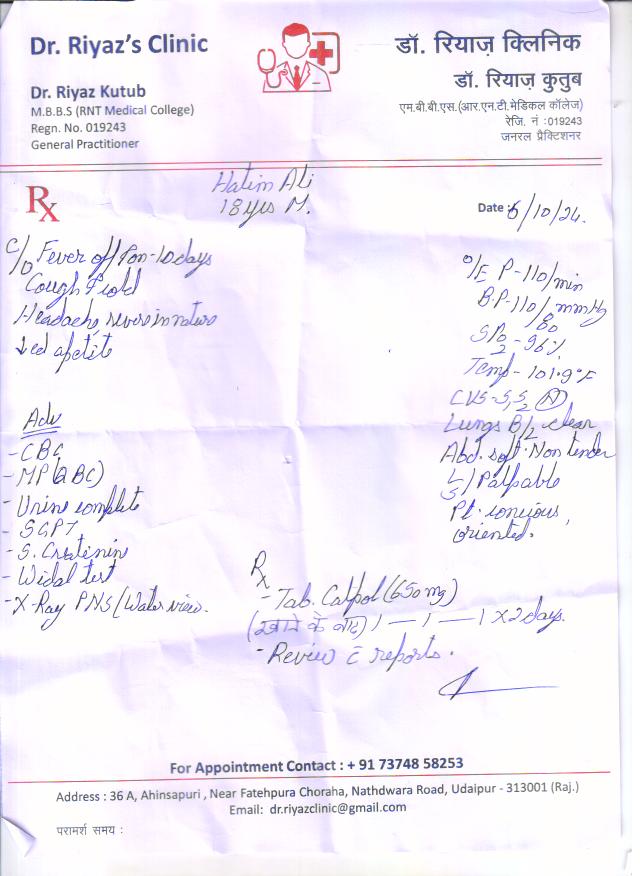 Dr. Riyaz's Clinic
Dr. Riyaz Kutub
M.B.B.S (RNT Medical College)
Regn. No. 019243
General Practitioner
डॉ. रियाज़ क्लिनिक
डॉ. रियाज़ कुतुब
एम.बी.बी.एस.(आर.एन.टी.मेडिकल कॉलेज)
रेजि. नं :019243
जनरल प्रैक्टिशनर
Hatim Ali
18 yrs M.
Rx
Date : 5/10/24.
C/O Fever off & on - 10 days
Cough & cold
Headache, severe in nature
↓ed apetite
O/E P-110/min
B.P-110/80 mmHg
SPO2-96%
Temp-101.9°F
CVS-S1S2 (N)
Lungs B/L clear
Abd. soft. Non tender
L/S/ Palpable
Pt. concious,
oriented.
Adv
- CBC
- MP(QBC)
- Urine complete
- SGPT
- S. Createnin
- Widal test
- X-Ray PNS (Water view.
Rx
- Tab. Calpol (650 mg)
(खाने के बाद) 1 — 1 — 1 x 2 days.
- Review c̄ reports.
For Appointment Contact : + 91 73748 58253
Address : 36 A, Ahinsapuri , Near Fatehpura Choraha, Nathdwara Road, Udaipur - 313001 (Raj.)
Email: dr.riyazclinic@gmail.com
परामर्श समय :